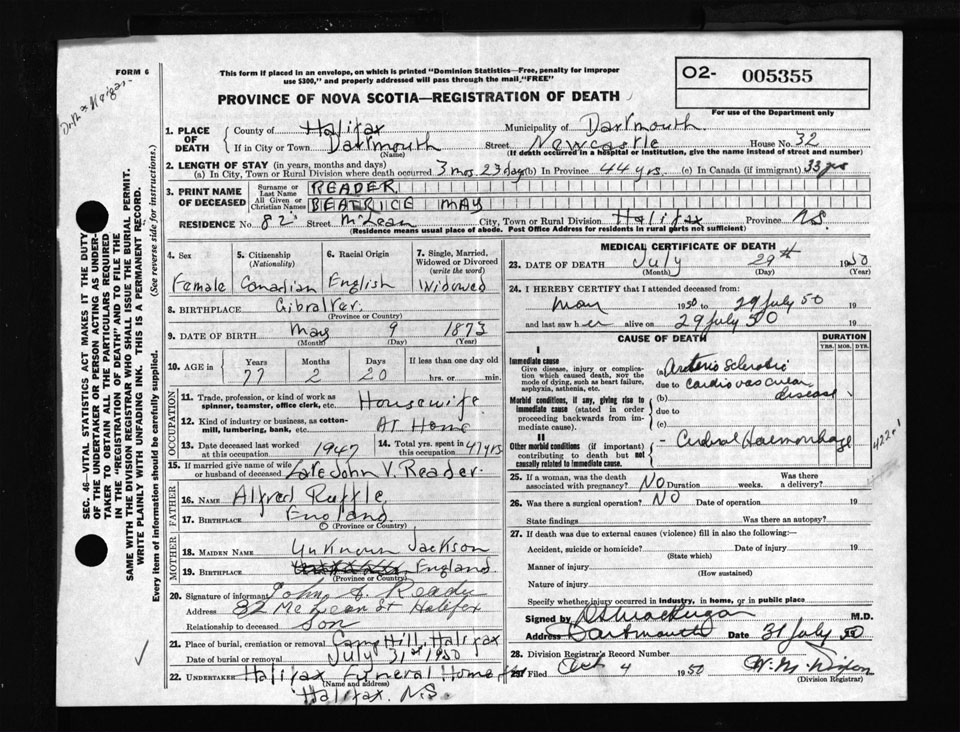 FORM 6
This form if placed in an envelope, on which is printed "Dominion Statistics—Free, penalty for improper
use $300," and properly addressed will pass through the mail, "FREE"
O2- 005355
PROVINCE OF NOVA SCOTIA—REGISTRATION OF DEATH
For use of the Department only
1. PLACE OF DEATH County of Halifax Municipality of Dartmouth
If in City or Town Dartmouth (Name) Street Newcastle House No. 32
(If death occurred in a hospital or institution, give the name instead of street and number)
2. LENGTH OF STAY (in years, months and days)
(a) In City, Town or Rural Division where death occurred 3 mos. 23 days (b) In Province 44 yrs. (c) In Canada (if immigrant) 33 yrs
3. PRINT NAME OF DECEASED Surname or Last Name READER
All Given or Christian Names BEATRICE MAY
RESIDENCE No. 82 Street McLean City, Town or Rural Division Halifax Province N.S.
(Residence means usual place of abode. Post Office Address for residents in rural parts not sufficient)
4. Sex Female
5. Citizenship (Nationality) Canadian
6. Racial Origin English
7. Single, Married, Widowed or Divorced (write the word) Widowed
8. BIRTHPLACE Gibralter
(Province or Country)
9. DATE OF BIRTH May 9 1873
(Month) (Day) (Year)
10. AGE in Years Months Days If less than one day old
77 2 20 hrs. or min.
OCCUPATION
11. Trade, profession, or kind of work as spinner, teamster, office clerk, etc. Housewife
12. Kind of industry or business, as cotton-mill, lumbering, bank, etc. At Home
13. Date deceased last worked at this occupation 1947
14. Total yrs. spent in this occupation 47 yrs
15. If married give name of wife or husband of deceased Late John V. Reader
FATHER
16. NAME Alfred Ruffle
17. BIRTHPLACE England
(Province or Country)
MOTHER
18. MAIDEN NAME Unknown Jackson
19. BIRTHPLACE England
(Province or Country)
20. Signature of informant John
Address 82 McLean St Halifax
Relationship to deceased Son
21. Place of burial, cremation or removal Camp Hill, Halifax
Date of burial or removal July 31st 1950
22. UNDERTAKER Halifax Funeral Home
(Name and address)
Halifax, N.S.
MEDICAL CERTIFICATE OF DEATH
23. DATE OF DEATH July 29th 1950
(Month) (Day) (Year)
24. I HEREBY CERTIFY that I attended deceased from:
May 1950 to 29 July 50 19
and last saw her alive on 29 July 50 19
CAUSE OF DEATH DURATION
YRS. MOS. DYS.
I
Immediate cause
Give disease, injury or complication which caused death, not the mode of dying, such as heart failure, asphyxia, asthenia, etc.
(a) Arterio Sclerotic
due to Cardio vascular
disease
Morbid conditions, if any, giving rise to immediate cause (stated in order proceeding backwards from immediate cause).
(b)
due to
(c)
II
Other morbid conditions (if important) contributing to death but not causally related to immediate cause.
- Cerebral Haemorrhage
25. If a woman, was the death associated with pregnancy? No Duration weeks. Was there a delivery?
26. Was there a surgical operation? No Date of operation 19
State findings Was there an autopsy?
27. If death was due to external causes (violence) fill in also the following:
Accident, suicide or homicide? Date of injury 19
(State which)
Manner of injury
(How sustained)
Nature of injury
Specify whether injury occurred in industry, in home, or in public place
Signed by M.D.
Address Dartmouth Date 31 July 50
28. Division Registrar's Record Number
29. Filed Oct 4 1950 W. M. Nixon
(Division Registrar)
SEC. 46—VITAL STATISTICS ACT MAKES IT THE DUTY
OF THE UNDERTAKER OR PERSON ACTING AS UNDER-
TAKER TO OBTAIN ALL THE PARTICULARS REQUIRED
IN THE "REGISTRATION OF DEATH" AND TO FILE THE
SAME WITH THE DIVISION REGISTRAR WHO SHALL ISSUE THE BURIAL PERMIT.
WRITE PLAINLY WITH UNFADING INK. THIS IS A PERMANENT RECORD.
Every item of information should be carefully supplied. (See reverse side for instructions.)